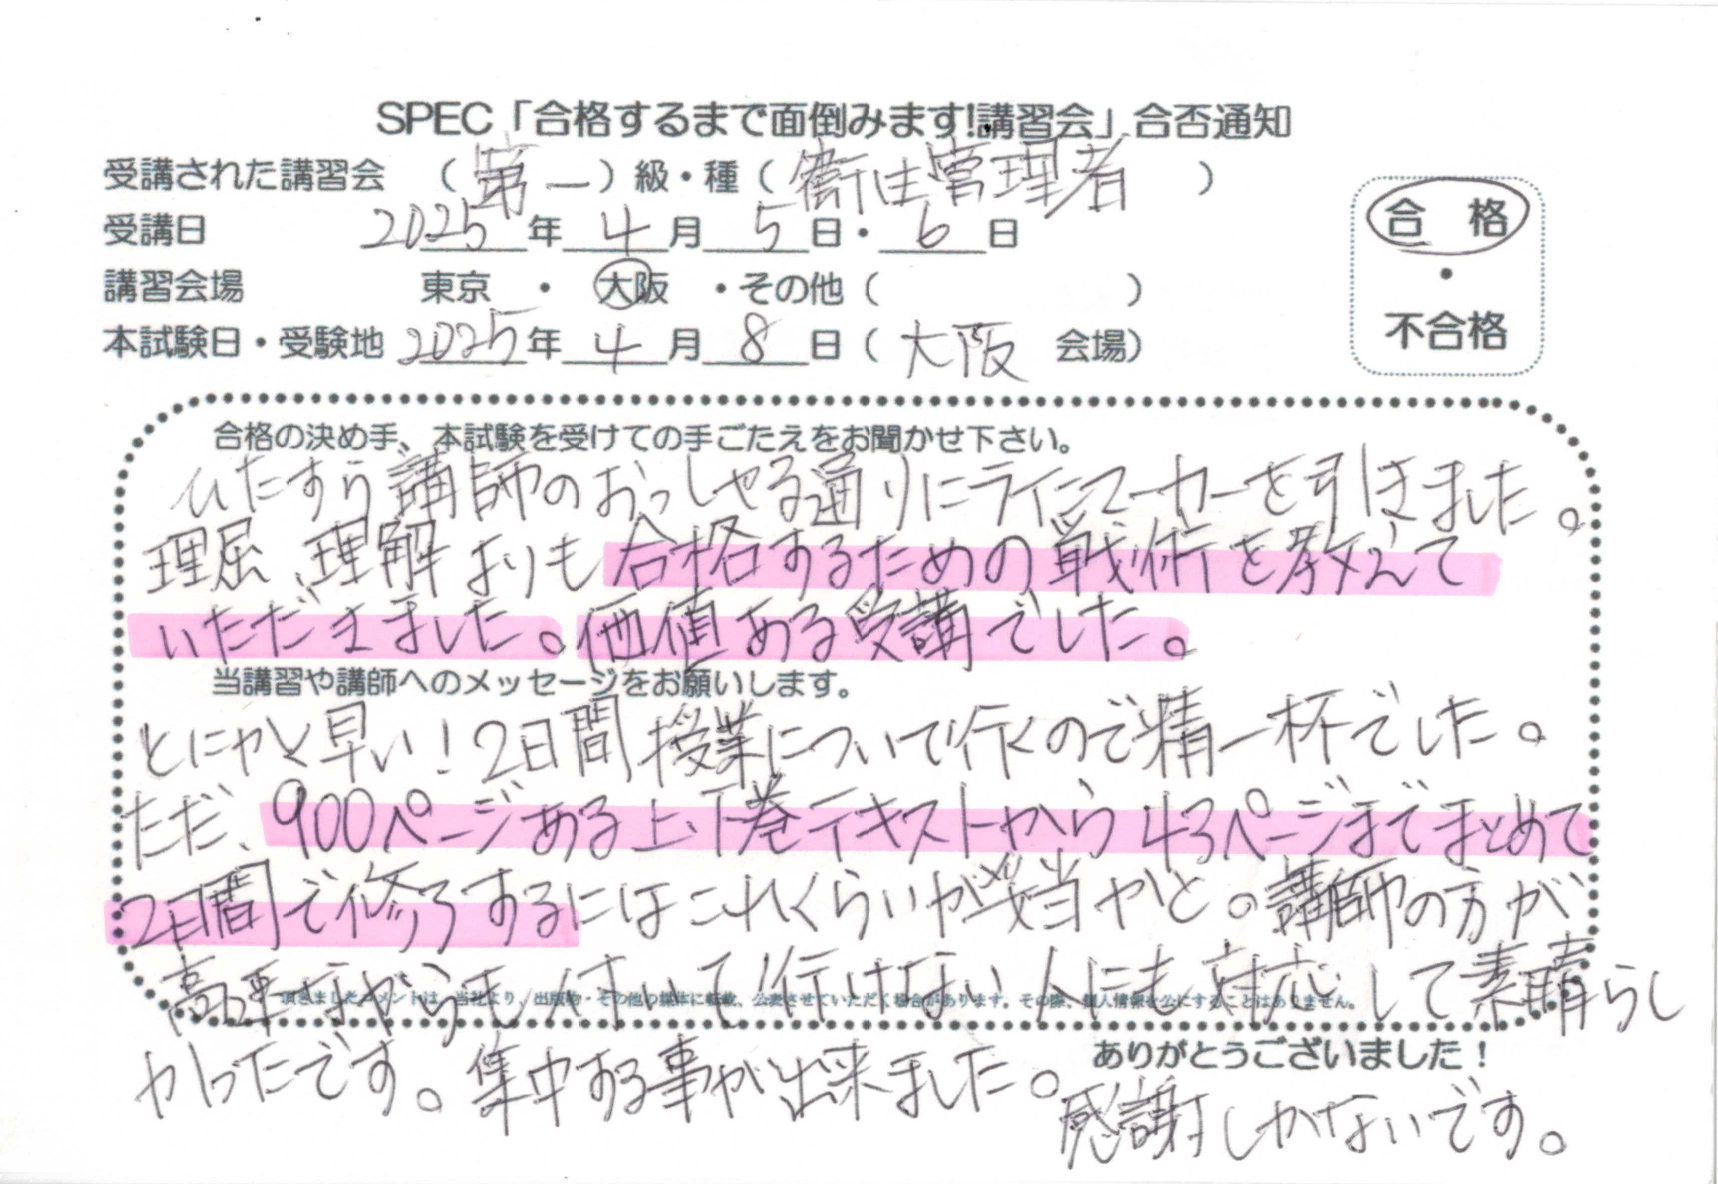 SPEC「合格するまで面倒みます!講習会」合否通知
受講された講習会 (第一)級・種(衛生管理者)
受講日 2025年4月5日・6日
講習会場 東京・大阪・その他( )
本試験日・受験地 2025年4月8日(大阪 会場)
合格
・
不合格
合格の決め手、本試験を受けての手ごたえをお聞かせ下さい。
ひたすら講師のおっしゃる通りにラインマーカーを引きました。
理屈、理解よりも合格するための戦術を教えて
いただきました。価値ある受講でした。
当講習や講師へのメッセージをお願いします。
とにかく早い!2日間授業について行くので精一杯でした。
ただ、900ページある上、下巻テキストから43ページまでまとめて
2日間で修了するにはこれくらいが妥当かと。講師の方が
高速ながらも付いて行けない人にも対応して素晴らし
頂きましたコメントは、当社より、出版物・その他の媒体に転載、公表させていただく場合があります。その際、個人情報を公にすることはありません。
かったです。集中する事が出来ました。
ありがとうございました!
感謝しかないです。